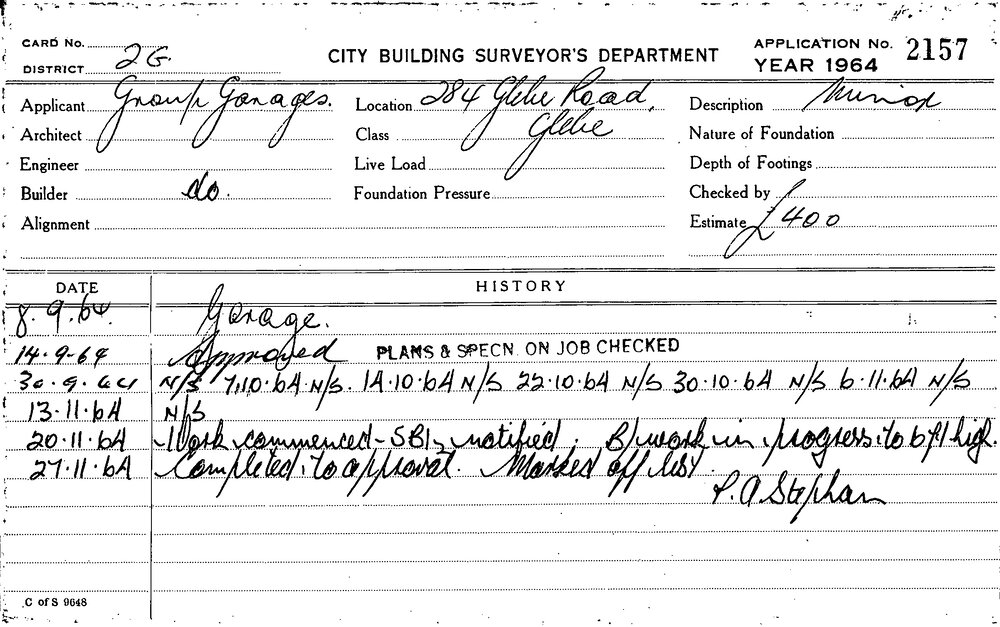 CARD No.
DISTRICT 2G.
CITY BUILDING SURVEYOR'S DEPARTMENT
APPLICATION No. 2157
YEAR 1964
Applicant Group Garages. Location 284 Glebe Road, Description Minor
Architect Class Glebe Nature of Foundation
Engineer Live Load Depth of Footings
Builder do. Foundation Pressure Checked by
Alignment Estimate £400
DATE HISTORY
8.9.64. Garage.
14.9.64 Approved PLANS & SPECN. ON JOB CHECKED
30.9.64 N/S 7.10.64 N/S. 14.10.64 N/S 22.10.64 N/S 30.10.64 N/S 6.11.64 N/S
13.11.64 N/S
20.11.64 Work commenced - SBI notified. B/work in progress to 6ft high.
27.11.64 Completed to approval. Marked off list.
P.A Stephan
C of S 9648